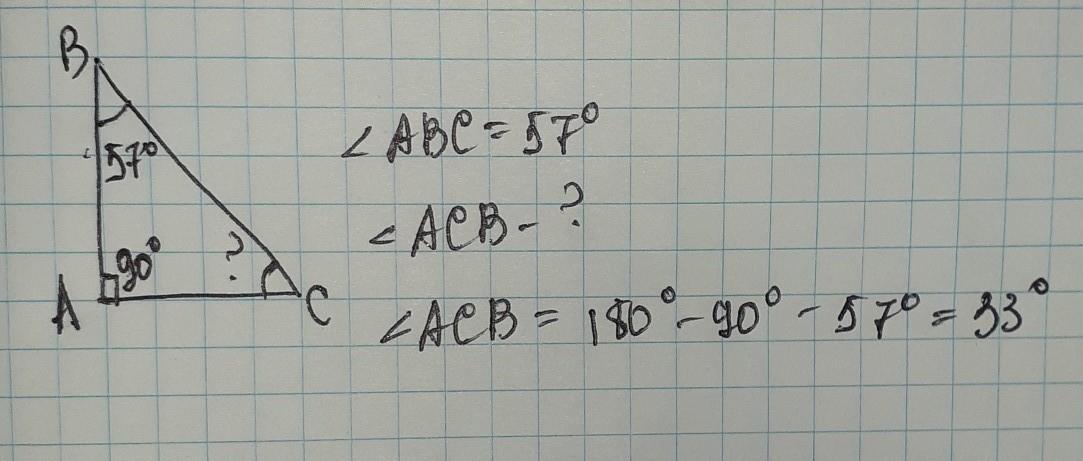 B
57°
90°
?
A
C
∠ABC = 57°
∠ACB - ?
∠ACB = 180° - 90° - 57° = 33°